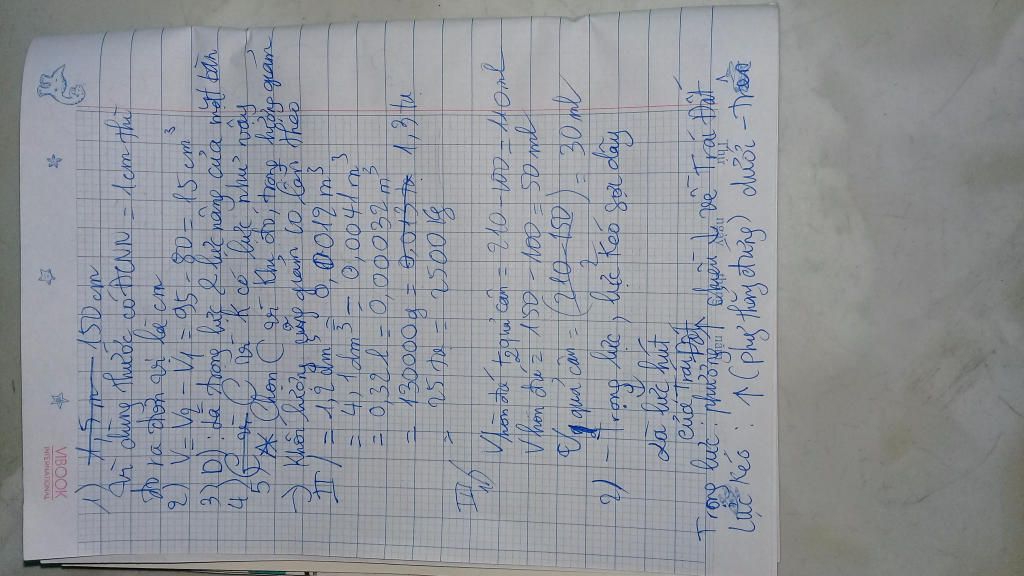 VIBOOK
INTERNATIONAL
1) A. 5 m - 150 cm
Vì dùng thước có ĐCNN = 1cm thì
đo ra đơn vị là cm
2) V = V2 - V1 = 95 - 80 = 15 cm³
3) D) : Là trọng lực
4) C vì K có lực như vậy
5) Chọn C vì khi đó, trọng lượng giảm
→ Khối lượng cũng giảm 10 lần theo
II) = 1,2 dm³ = 0,0012 m³
= 4,1 dm³ = 0,0041 m³
= 0,32 l = 0,00032 m³
= 130000g = 0,013 tạ 1,3 tạ
= 25 tạ = 2500 kg
III)
V hòn đá + 2 quả cân = 210 - 100 = 110 ml
V hòn đá = 150 - 100 = 50 ml
V 1 quả cân = (210 - 150) = 30 ml
2) - Trọng lực, lực kéo sợi dây
Là lực hút
của Trái Đất
Trọng lực: phương chiều về Trái Đất
Lực kéo : ↑ (Phg thẳng đứng) dưới - Trên